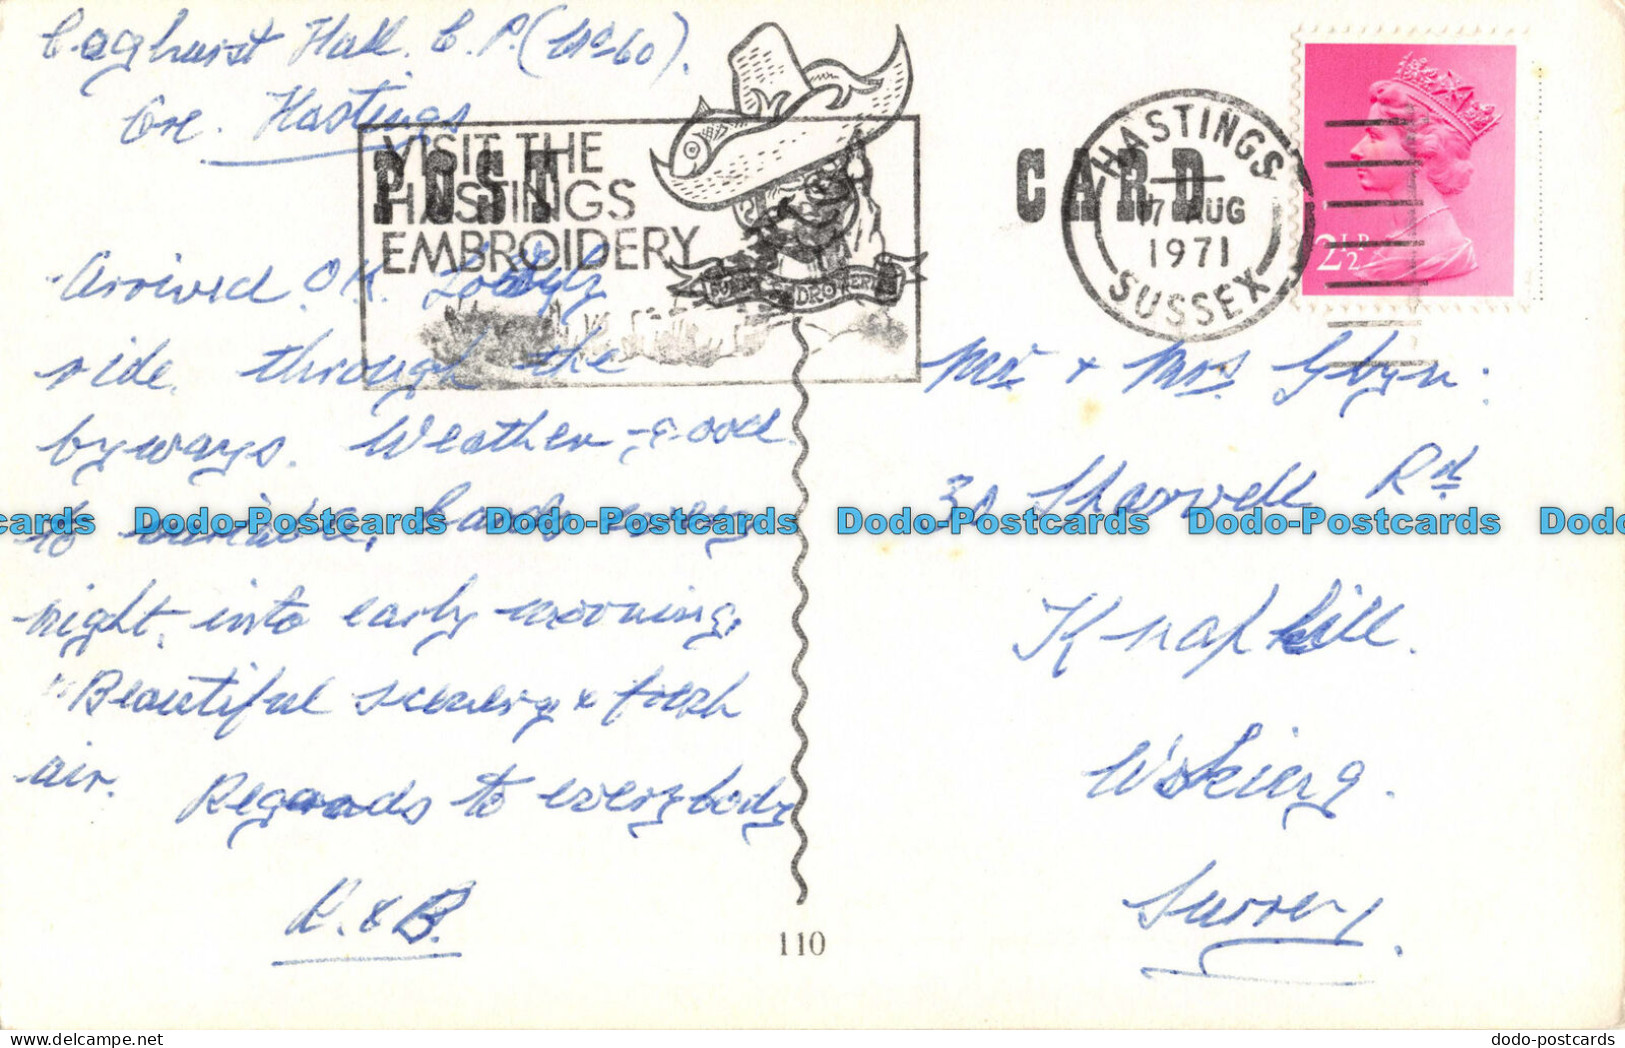 Coghurst Hall. C. P. (No 60).
Ore. Hastings
POST CARD
VISIT THE
HASTINGS
EMBROIDERY
HASTINGS
17 AUG
1971
SUSSEX
2½P
Arrived O.K. Lovely
ride through the
byways. Weather good
to variable. Cards every
night, into early morning.
Beautiful scenery & fresh
air.
Regards to everybody
K. & B.
Mr & Mrs Glyn:
30 Rd
Knaphill.
Woking.
Surrey.
110
cards Dodo-Postcards Dodo-Postcards Dodo-Postcards Dodo-Postcards Dodo-Postcards Dodo
dodo-postcards